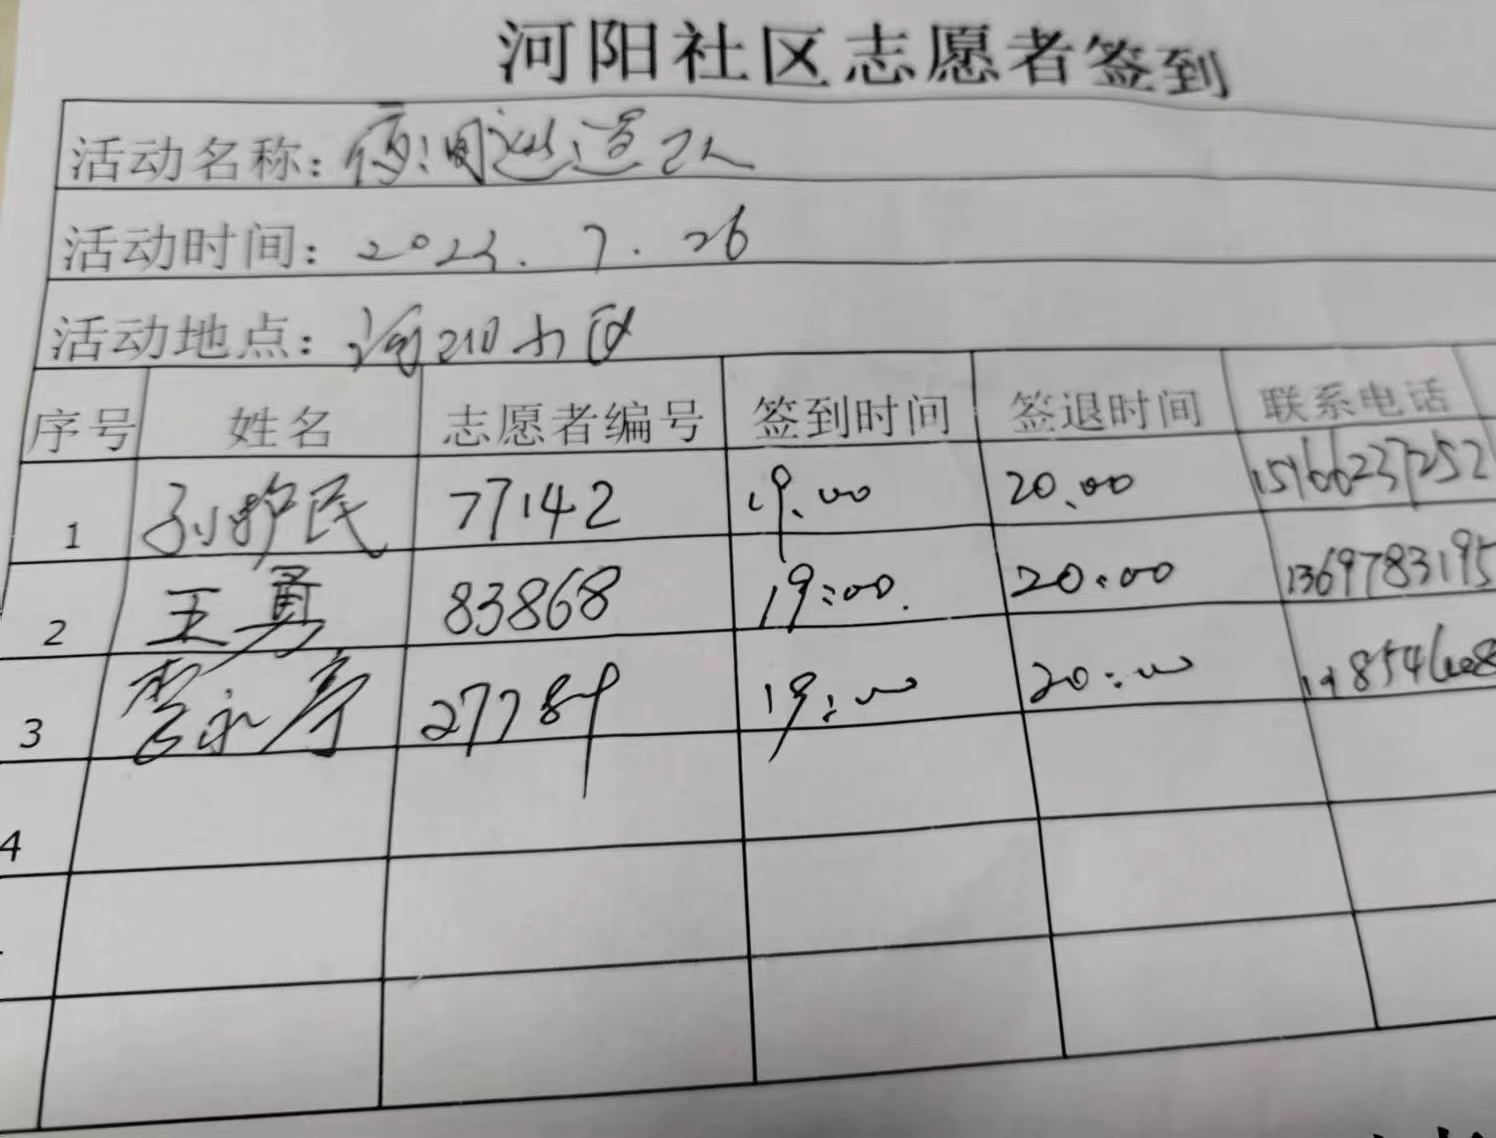 河阳社区志愿者签到
活动名称：夜间巡逻队
活动时间：2023.7.26
活动地点：河阳小区
序号 姓名 志愿者编号 签到时间 签退时间 联系电话
1 孙护民 77142 19:00 20:00 15166237252
2 王勇 83868 19:00. 20:00 13697783195
3 李永 27789 19:00 20:00
4